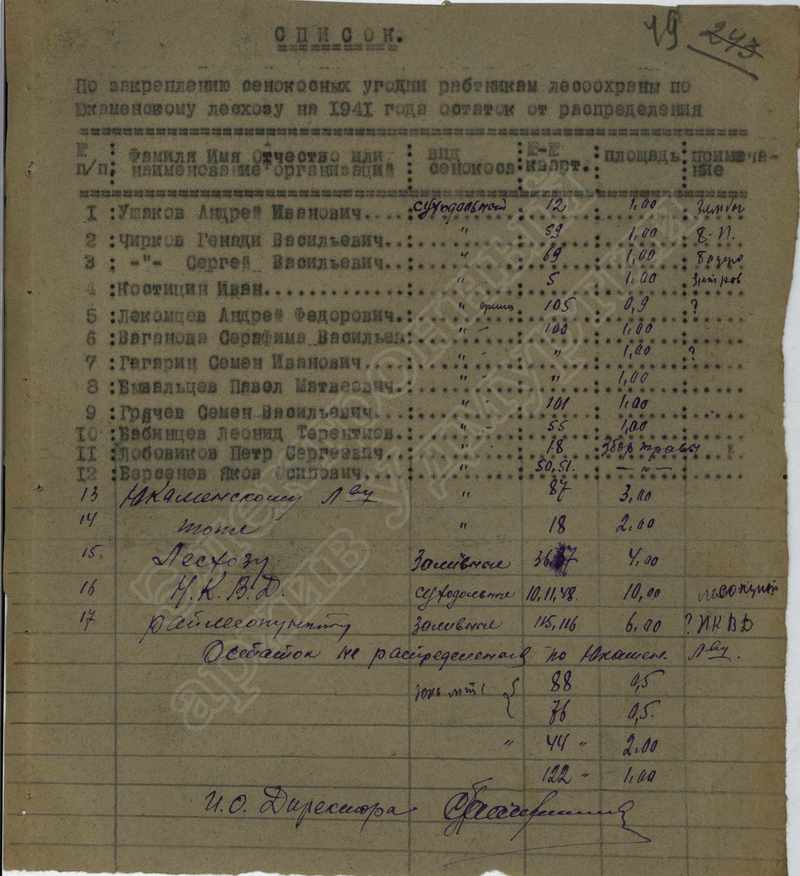 19 243
СПИСОК.
По закреплению сенокосных угодии рабтникам лесоохраны по
Юкаменовому лесхозу на 1941 года остаток от распределения
№ п/п : Фамиля Имя Отчество или наименование организаций : вид сенокоса : №-№ кварт. : площадь : примечание
1 : Ушаков Андрей Иванович.... суходольной 12 1,00
2 : Чирков Генади Васильевич.. " 59 1,00
3 : -"- Сергей Васильевич.. " 69 1,00
4 : Костицин Иван............. " 5 1,00
5 : Лекомцев Андрей Федорович. " 105 0,9 ?
6 : Ваганова Серафима Васильев " 100 1,00
7 : Гагарин Семен Иванович.... " " 1,00 ?
8 : Павел Матвеевич. " " 1,00
9 : Грячев Семен Васильевич... " 101 1,00
10 : Бабинцев Леонид Терентиев. " 55 1,00
11 : Лобовиков Петр Сергеевич.. " 18 Збор травы
12 : Берсенев Яков Осипович.... " 50,51. — " —
13 Юкаменскому Л-ву " 87 3,00
14 тоже " 18 2.00
15. Лесхозу Заливное 4,00
16 Н.К.В.Д. суходольное 10,11,48. 10,00
17 райлесопункту Заливное 115,116 6.00 ? НКВД
Остаток не распределеной по Юкамен. Л-ву.
88 0,5
76 0,5.
" 44 " 2.00
122 " 1,00
И.О. Директора